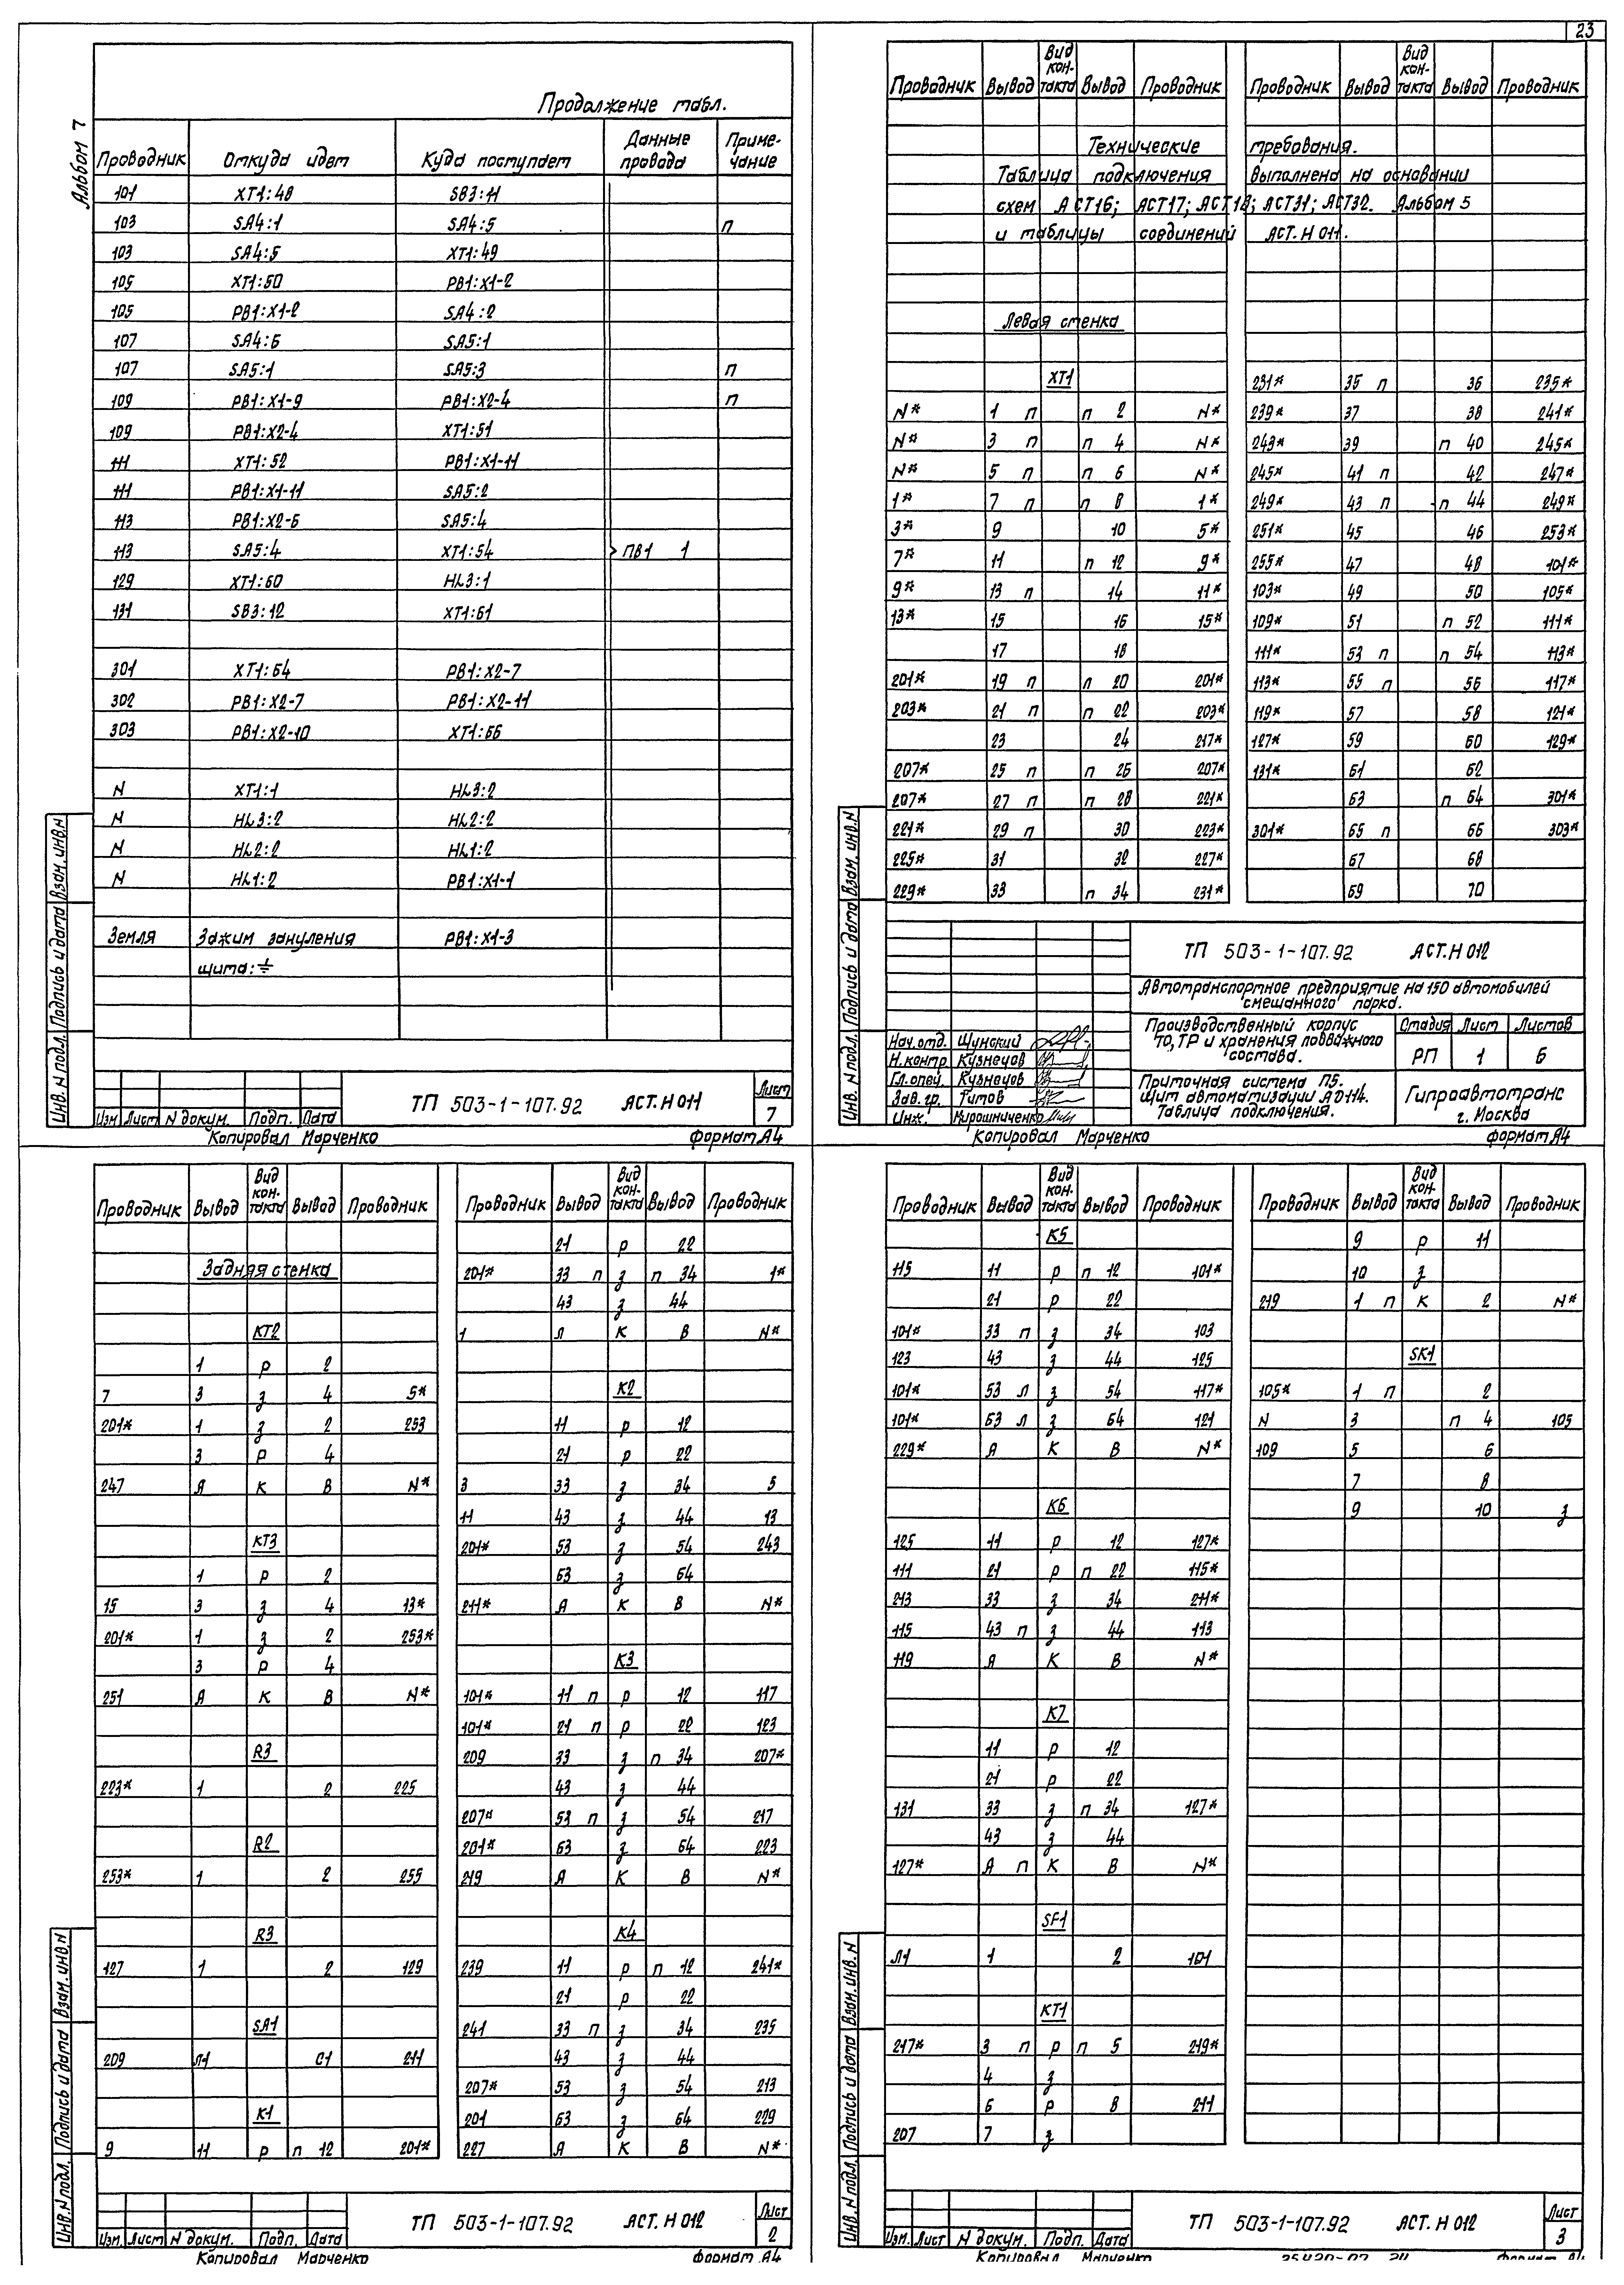 23
Альбом 7
Продолжение табл.
Проводник Откуда идет Куда поступает Данные провода Приме-чание
101 XT1:48 SB3:11
103 SA4:1 SA4:5 п
103 SA4:5 XT1:49
105 XT1:50 PB1:X1-2
105 PB1:X1-2 SA4:2
107 SA4:6 SA5:1
107 SA5:1 SA5:3 п
109 PB1:X1-9 PB1:X2-4 п
109 PB1:X2-4 XT1:51
111 XT1:52 PB1:X1-11
111 PB1:X1-11 SA5:2
113 PB1:X2-5 SA5:4
113 SA5:4 XT1:54 ПВ1 1
129 XT1:60 HL3:1
131 SB3:12 XT1:61
301 XT1:64 PB1:X2-7
302 PB1:X2-7 PB1:X2-11
303 PB1:X2-10 XT1:66
N XT1:1 HL3:2
N HL3:2 HL2:2
N HL2:2 HL1:2
N HL1:2 PB1:X1-1
Земля Зажим зануления PB1:X1-3
щита: ⏚
Инв. N подл. Подпись и дата Взам. инв. N
Изм Лист N докум. Подп. Дата
ТП 503-1-107.92 АСТ.Н 011
Лист
7
Копировал Марченко формат А4
Проводник Вывод Вид кон-такта Вывод Проводник Проводник Вывод Вид кон-такта Вывод Проводник
Технические требования.
Таблица подключения выполнена на основании
схем АСТ16; АСТ17; АСТ18; АСТ31; АСТ32. Альбом 5
и таблицы соединений АСТ.Н 011.
Левая стенка
XT1 231* 35 п 36 235*
N* 1 п п 2 N* 239* 37 38 241*
N* 3 п п 4 N* 243* 39 п 40 245*
N* 5 п п 6 N* 245* 41 п 42 247*
1* 7 п п 8 1* 249* 43 п п 44 249*
3* 9 10 5* 251* 45 46 253*
7* 11 п 12 9* 255* 47 48 101*
9* 13 п 14 11* 103* 49 50 105*
13* 15 16 15* 109* 51 п 52 111*
17 18 111* 53 п п 54 113*
201* 19 п п 20 201* 113* 55 п 56 117*
203* 21 п п 22 203* 119* 57 58 121*
23 24 217* 127* 59 60 129*
207* 25 п п 26 207* 131* 61 62
207* 27 п п 28 221* 63 п 64 301*
221* 29 п 30 223* 301* 65 п 66 303*
225* 31 32 227* 67 68
229* 33 п 34 231* 69 70
Инв. N подл. Подпись и дата Взам. инв. N
ТП 503-1-107.92 АСТ.Н 012
Автотранспортное предприятие на 150 автомобилей
смешанного парка.
Нач.отд. Щунский
Н.контр Кузнецов
Гл.спец. Кузнецов
Зав.гр. Титов
Инж. Мирошниченко
Производственный корпус
ТО, ТР и хранения подвижного
состава.
Стадия Лист Листов
РП 1 6
Приточная система П5.
Щит автоматизации АD114.
Таблица подключения.
Гипроавтотранс
г. Москва
Копировал Марченко формат А4
Проводник Вывод Вид кон-такта Вывод Проводник Проводник Вывод Вид кон-такта Вывод Проводник
21 р 22
Задняя стенка 201* 33 п з п 34 1*
43 з 44
KT2 1 Л К В N*
1 р 2
7 3 з 4 5* K2
201* 1 з 2 253 11 р 12
3 р 4 21 р 22
247 А К В N* 3 33 з 34 5
11 43 з 44 13
KT3 201* 53 з 54 243
1 р 2 63 з 64
15 3 з 4 13* 211* А К В N*
201* 1 з 2 253*
3 р 4 K3
251 А К В N* 101* 11 п р 12 117
101* 21 п р 22 123
R3 209 33 з п 34 207*
223* 1 2 225 43 з 44
207* 53 п з 54 217
R2 201* 63 з 64 223
253* 1 2 255 219 А К В N*
R3 K4
127 1 2 129 239 11 р п 12 241*
21 р 22
SA1 241 33 п з 34 235
209 Л1 С1 211 43 з 44
207* 53 з 54 213
K1 201 63 з 64 229
9 11 р п 12 201* 227 А К В N*
Инв. N подл. Подпись и дата Взам. инв. N
Изм. Лист N докум. Подп. Дата
ТП 503-1-107.92 АСТ.Н 012
Лист
2
Копировал Марченко формат А4
Проводник Вывод Вид кон-такта Вывод Проводник Проводник Вывод Вид кон-такта Вывод Проводник
K5 9 р 11
115 11 р п 12 101* 10 з
21 р 22 219 1 п К 2 N*
101* 33 п з 34 103
123 43 з 44 125 SK1
101* 53 л з 54 117* 105* 1 п 2
101* 63 л з 64 121 N 3 п 4 105
229* А К В N* 109 5 6
7 8
K6 9 10 з
125 11 р 12 127*
111 21 р п 22 115*
213 33 з 34 211*
115 43 п з 44 113
119 А К В N*
K7
11 р 12
21 р 22
131 33 з п 34 127*
43 з 44
127* А п К В N*
SF1
Л1 1 2 101
KT1
217* 3 п р п 5 219*
4 з
6 р 8 211
207 7 з
Инв. N подл. Подпись и дата Взам. инв. N
Изм. Лист N докум. Подп. Дата
ТП 503-1-107.92 АСТ.Н 012
Лист
3
Копировал Марченко формат А4